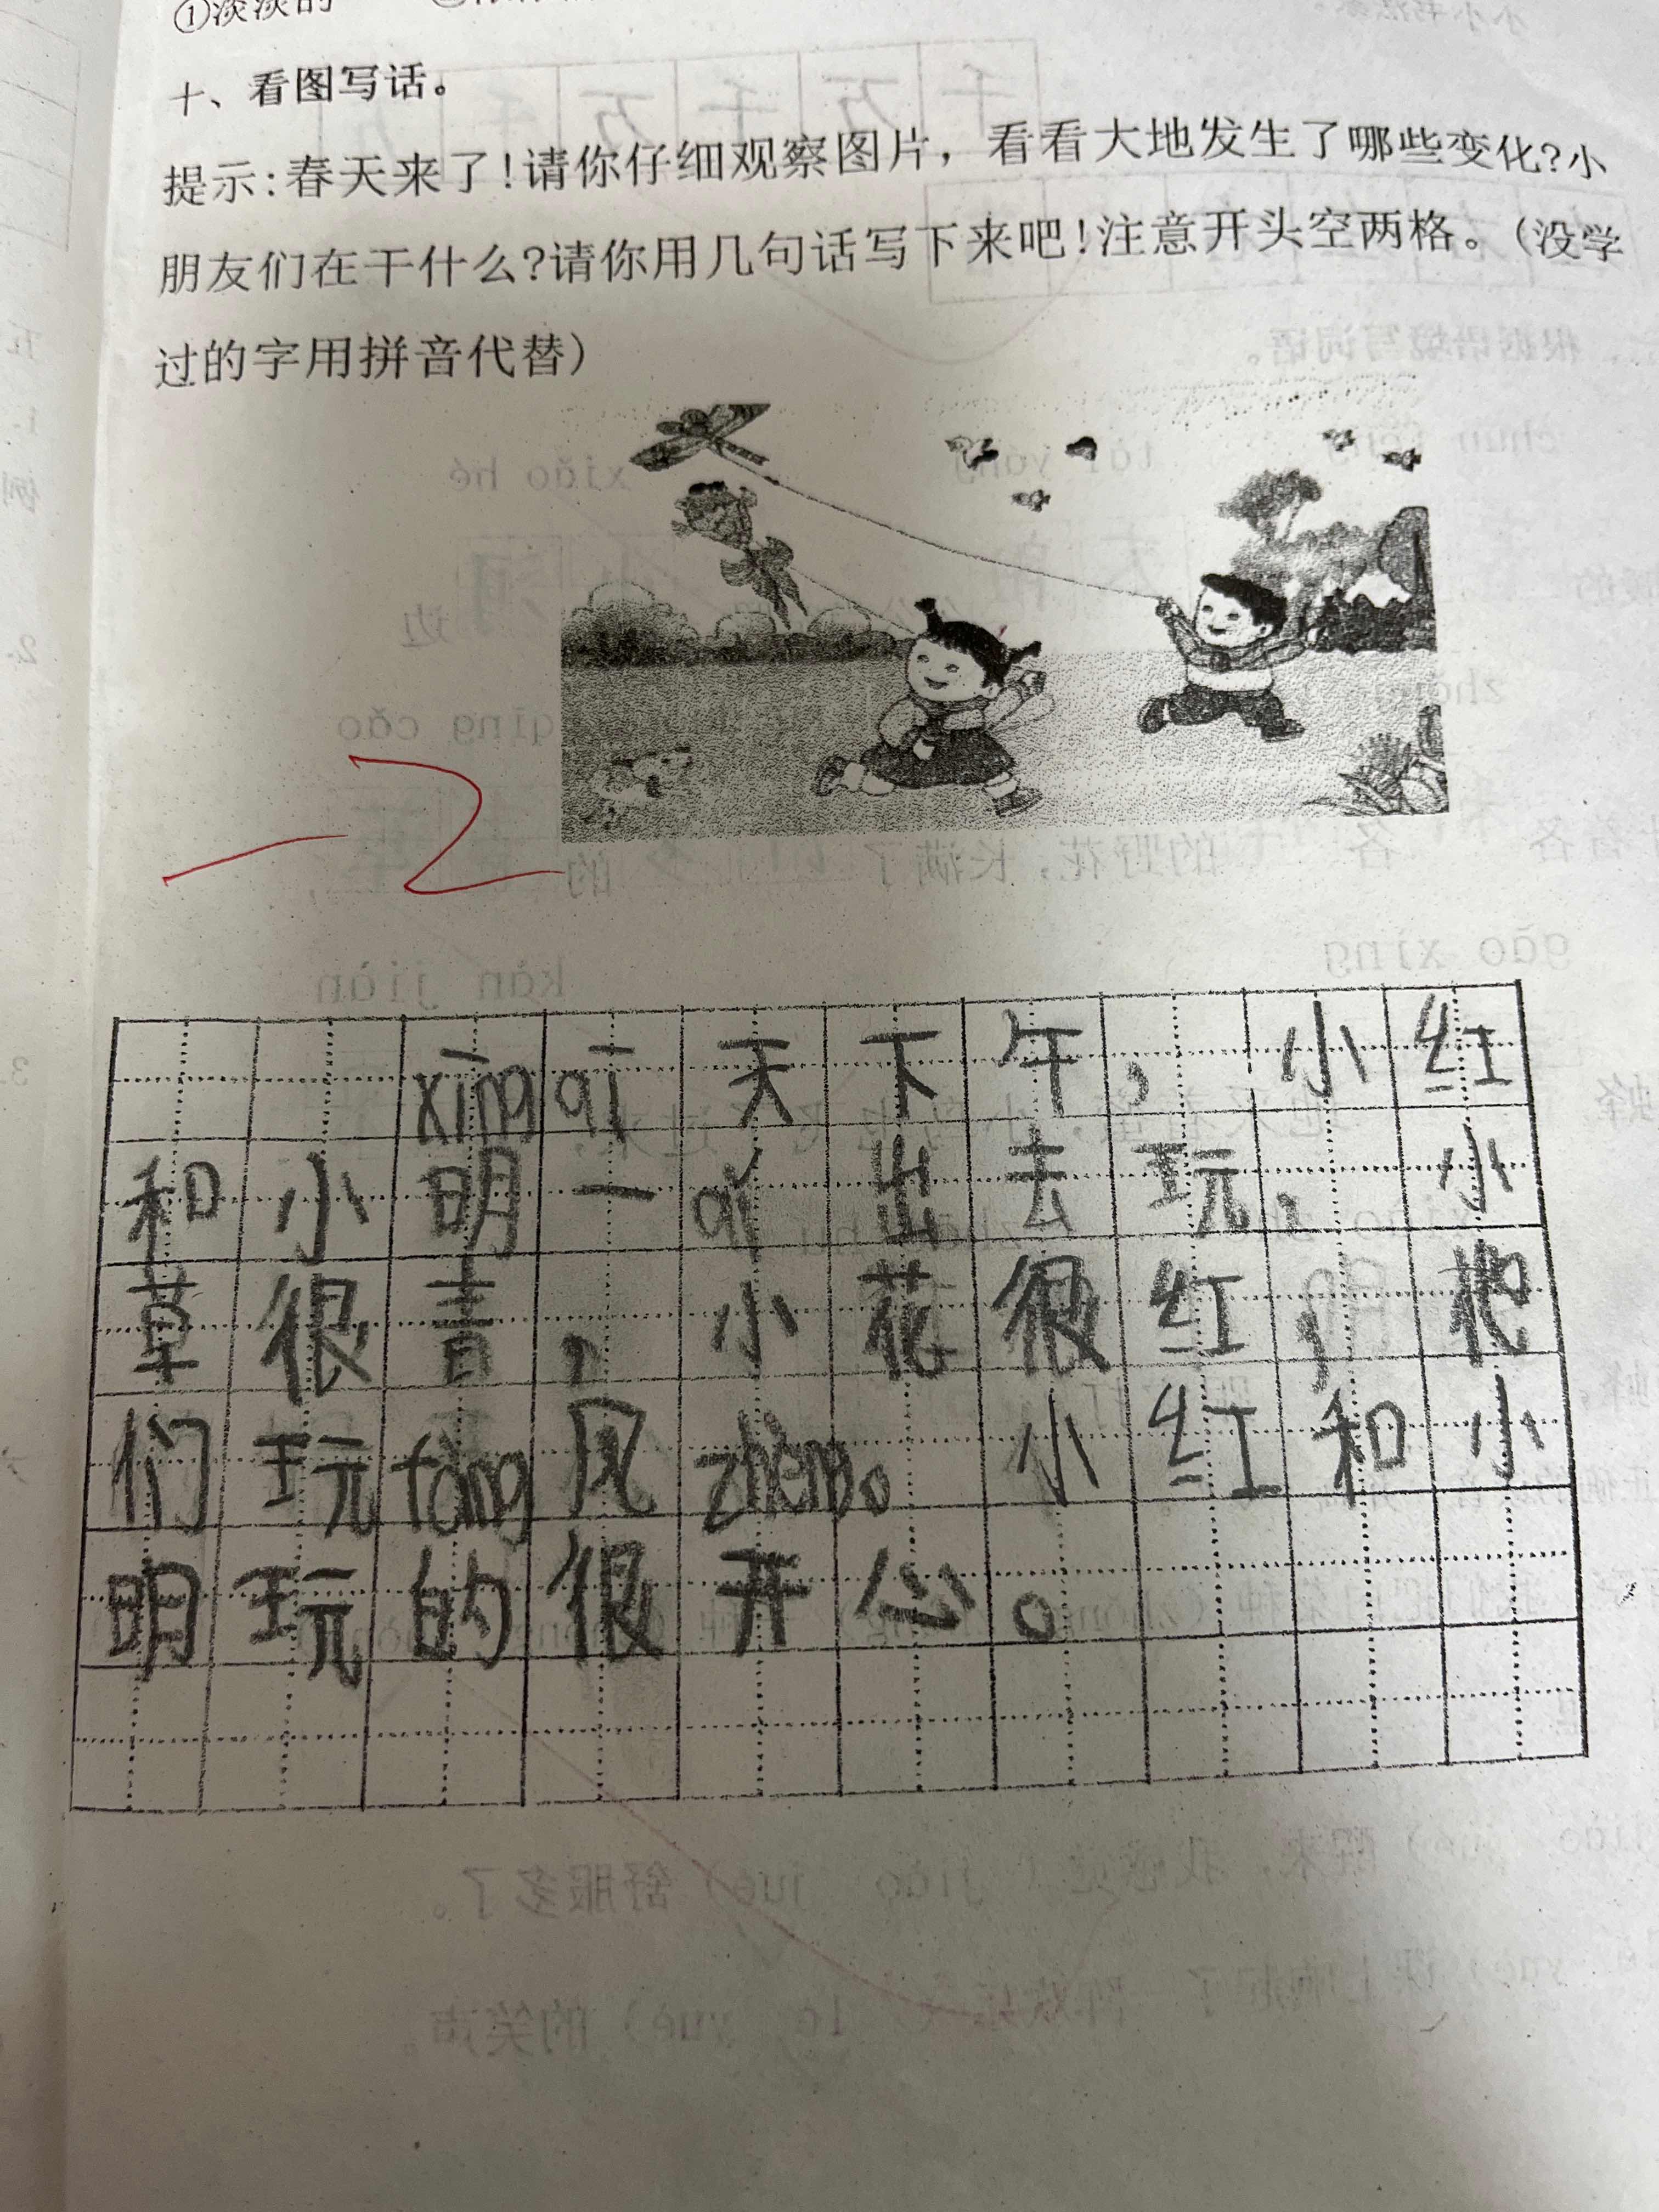 ①淡淡的
十、看图写话。
提示:春天来了!请你仔细观察图片,看看大地发生了哪些变化?小
朋友们在干什么?请你用几句话写下来吧!注意开头空两格。(没学
过的字用拼音代替)
-2
xīng qī 天下午,小红
和小明一qǐ出去玩,小
草很青,小花很红,他
们玩fàng风zhēng。小红和小
明玩的很开心。